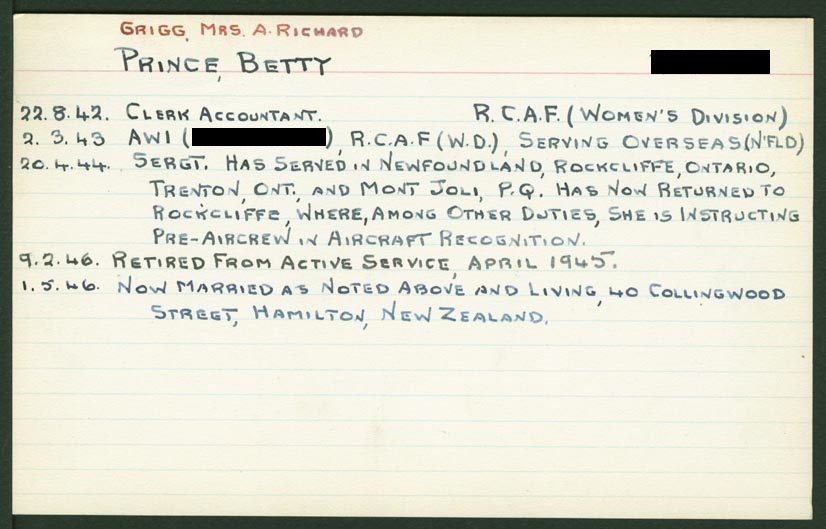 GRIGG, MRS. A. RICHARD
PRINCE, BETTY
22.8.42. CLERK ACCOUNTANT. R.C.A.F. (WOMEN'S DIVISION)
2.3.43 AW1 ( ), R.C.A.F (W.D.), SERVING OVERSEAS (N'FLD)
20.4.44. SERGT. HAS SERVED IN NEWFOUNDLAND, ROCKCLIFFE, ONTARIO,
TRENTON, ONT., AND MONT JOLI, P.Q. HAS NOW RETURNED TO
ROCKCLIFFE, WHERE, AMONG OTHER DUTIES, SHE IS INSTRUCTING
PRE-AIRCREW IN AIRCRAFT RECOGNITION.
9.2.46. RETIRED FROM ACTIVE SERVICE, APRIL 1945.
1.5.46. NOW MARRIED AS NOTED ABOVE AND LIVING, 40 COLLINGWOOD
STREET, HAMILTON, NEW ZEALAND.